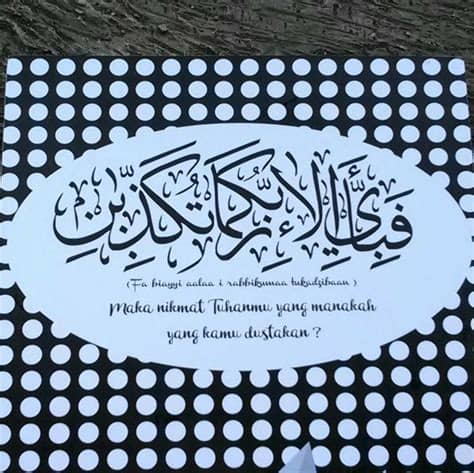 فَبِأَيِّ اٰلَاۤءِ رَبِّكُمَا تُكَذِّبٰنِ
( Fa biayyi aalaa i rabbikumaa tukadzibaan )
Maka nikmat Tuhanmu yang manakah
yang kamu dustakan ?